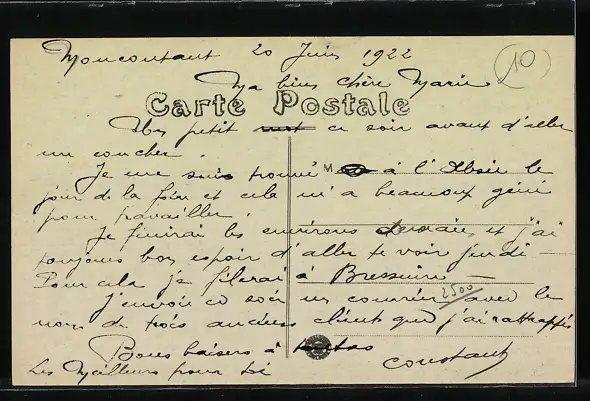 Moncoutant 20 Juin 1922
(10)
Ma bien chère Marie
Carte Postale
Un petit ce soir avant d'aller
me coucher.
Je me suis trouvé à l'Absie le
jour de la foire et cela m'a beaucoup gêné
pour travailler.
Je finirai les environs et j'ai
toujours bon espoir d'aller te voir jeudi —
Pour cela je filerai à Bressuire —
J'envoie ce soir un courrier avec le
2500
nom de trois anciens client que j'ai rattrappés
Bons baisers à
Les Meilleurs pour toi
Constant